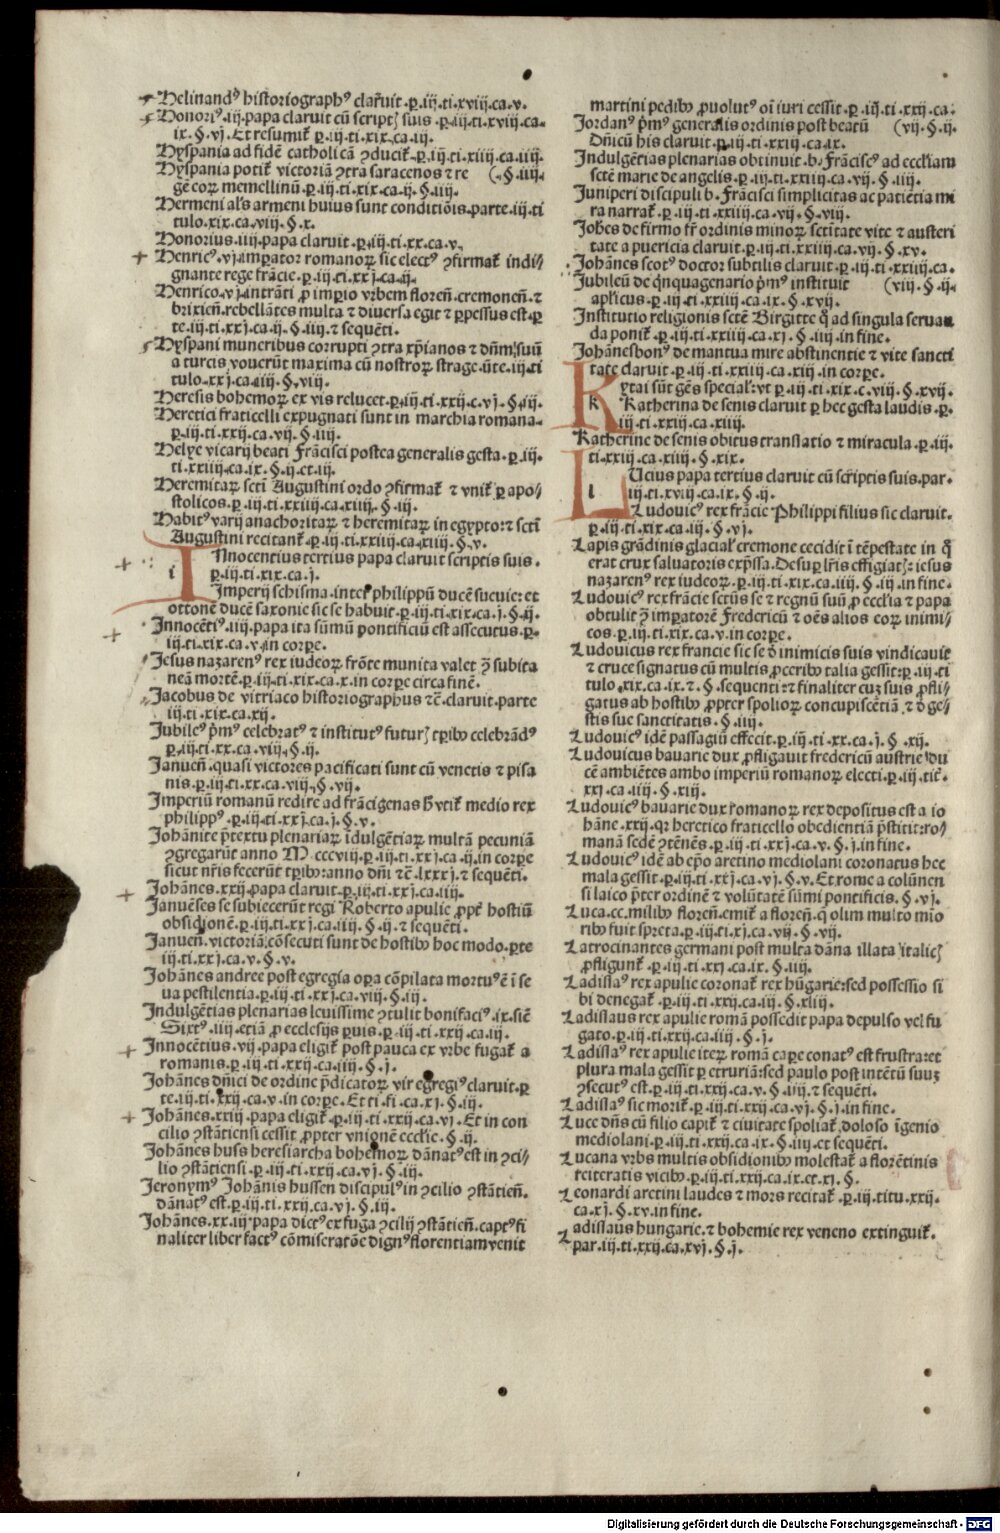 Helinandꝰ historiographꝰ clar̃uit .p̲.iij.ti.xviij.ca.v.
Honoriꝰ.iij.papa claruit cũ script̃ suis .p̲.iij.ti.xviij.ca.
ix.§.vj. Et resumit̃ p̲.iij.ti.xix.ca.iij.
Hyspania ad fidẽ catholicã ꝯducit̃.p̲.iij.ti.xiiij.ca.iiij.
Hyspania potit̃ victoriã ꝯtra saracenos ⁊ re (.§.iiij.
gẽ eoꝝ memellinũ.p̲.iij.ti.xix.ca.ij.§.iiij.
Hermeni al's armeni huius sunt conditiõis.parte.iij.ti
tulo.xix.ca.viij.§.x.
Honorius.iiij.papa claruit.p̲.iij.ti.xx.ca.v.
Henricꝰ.vj.imp̲ator romanoꝝ sic electꝰ ꝯfirmat̃ indi/
gnante rege frãcie.p̲.iij.ti.xxj.ca.ij.
Henrico.vj.intrãti ꝓ imp̲io vrbem floreñ.cremoneñ.⁊
brixieñ.rebellãtes multa ⁊ diuersa egit ⁊ p̲pessus est.p̲
te.iij.ti.xxj.ca.ij.§.iiij.⁊ sequẽti.
Hyspani muneribus corrupti ꝯtra xp̃ianos ⁊ dñm suũ
a turcis vouerũt maxima cũ nostroꝝ strage.ũte.iij.ti
tulo.xxj.ca.iiij.§.viij.
Heresis bohemoꝝ ex vis relucet.p̲.iij.ti.xxij.c.vj.§.ij.
Heretici fraticelli expugnati sunt in marchia romana.
p̲.iij.ti.xxij.ca.vij.§.iij.
Helye vicarij beati Frãcisci postea generalis gesta.p̲.iij.
ti.xxiiij.ca.ix.§.ij.et.iij.
Heremitaꝝ sctĩ Augustini ordo ꝯfirmat̃ ⁊ vnit̃ p̲ apo/
stolicos.p̲.iij.ti.xxiiij.ca.xiiij.§.iij.
Habitꝰ varij anachoritaꝝ ⁊ heremitaꝝ in egypto:⁊ sctĩ
Augustini recitant̃.p̲.iij.ti.xxiiij.ca.xiiij.§.v.
Innocentius tertius papa claruit scriptis suis.
p̲.iij.ti.xix.ca.j.
Imperij schisma.inter philippũ ducẽ sueuie:et
ottonẽ ducẽ saxonie sic se habuit.p̲.iij.ti.xix.ca.j.§.ij.
Innocẽtiꝰ.iiij.papa ita sũmũ pontificiũ est assecutus.p̲.
iij.ti.xix.ca.v.in corp̲e.
Jesus nazarenꝰ rex iudeoꝝ frõte munita valet ꝯ̃ subita
neã mortẽ.p̲.iij.ti.xix.ca.x.in corp̲e circa finẽ.
Jacobus de vitriaco historiographus ⁊c̃.claruit.parte
iij.ti.xix.ca.xij.
Jubileꝰ p̃mꝰ celebratꝰ ⁊ institutꝰ futur̃ tp̲ibꝰ celebrãdꝰ
p̲.iij.ti.xx.ca.viij.§.ij.
Janueñ.quasi victores pacificati sunt cũ venetis ⁊ pisa
nis.p̲.iij.ti.xx.ca.viij.§.vij.
Imperiũ romanũ redire ad frãcigenas h̃ vetit̃ medio rex
philippꝰ.p̲.iij.ti.xxj.ca.j.§.v.
Johãnite p̃textu plenariaꝝ ĩdulgẽtiaꝝ multã pecuniã
ꝯgregarũt anno M.cccviij.p̲.iij.ti.xxj.ca.ij.in corp̲e
sicut nr̃is fecerũt tp̲ibꝰ:anno dñi ⁊c̃.lxxxj.⁊ sequẽti.
Johãnes.xxij.papa claruit.p̲.iij.ti.xxj.ca.iiij.
Januẽses se subiecerũt regi Roberto apulie ꝓpt̃ hostiũ
obsidionẽ.p̲.iij.ti.xxj.ca.iiij.§.ij.⁊ sequẽti.
Janueñ.victoriã cõsecuti sunt de hostibꝰ hoc modo.p̲te
iij.ti.xxj.ca.v.§.v.
Johãnes andree post egregia op̲a cõpilata mortuꝰ ẽ ĩ se
ua pestilentia.p̲.iij.ti.xxj.ca.viij.§.iij.
Indulgẽtias plenarias leuissime ꝯtulit bonifaciꝰ.ix.sicẽ
Sixtꝰ.iiij.etiã ꝓ ecclesijs p̲uis.p̲.iij.ti.xxij.ca.iij.
Innocẽtius.vij.papa eligit̃ post pauca ex vrbe fugat̃ a
romanis.p̲.iij.ti.xxij.ca.iiij.§.j.
Johãnes dñici de ordine p̃dicatoꝝ vir egregiꝰ claruit.p̲
te.iij.ti.xxij.ca.v.in corp̲e. Et ti.fi.ca.xj.§.iij.
Johãnes.xxiij.papa eligit̃.p̲.iij.ti.xxij.ca.vj. Et in con
cilio ꝯstãtiensi cessit ꝓpter vnionẽ eccl'ie.§.ij.
Johãnes huss heresiarcha bohemoꝝ dãnatꝰ est in ꝯci/
lio ꝯstãtiensi.p̲.iij.ti.xxij.ca.vj.§.iij.
Jeronymꝰ Johãnis hussen discipulꝰ in ꝯcilio ꝯstãtieñ.
dãnatꝰ est.p̲.iij.ti.xxij.ca.vj.§.iij.
Johãnes.xx.iij.papa dictꝰ ex fuga ꝯcilij ꝯstãtieñ.captꝰ fi
naliter liber factꝰ cõmiseratõe dignꝰ florentiam venit
martini pedibꝰ ꝓuolutꝰ oĩ iuri cessit.p̲.iij.ti.xxij.ca.
Jordanꝰ p̃mꝰ generalis ordinis post beatũ (vij.§.ij.
Dñicũ his claruit.p̲.iij.ti.xxiij.ca.ix.
Indulgẽtias plenarias obtinuit.b.Frãciscꝰ ad eccl'iam
sctẽ marie de angelis.p̲.iij.ti.xxiiij.ca.vij.§.iiij.
Juniperi discipuli b.Frãcisci simplicitas ac patiẽtia mi
ra narrat̃.p̲.iij.ti.xxiiij.ca.vij.§.viij.
Johẽs de firmo fr̃ ordinis minoꝝ scti̇tate vite ⁊ austeri
tate a puericia claruit.p̲.iij.ti.xxiiij.ca.vij.§.xv.
Johãnes scotꝰ doctor subtilis claruit.p̲.iij.ti.xxiiij.ca.
Jubileũ de qⁱnquagenario p̃mꝰ instituit (viij.§.ij.
apl'icus.p̲.iij.ti.xxiiij.ca.ix.§.xvij.
Institutio religionis sctẽ Birgitte q̃ ad singula seruan
da ponit̃.p̲.iij.ti.xxiiij.ca.xj.§.iiij.in fine.
Johãnes bonꝰ de mantua mire abstinentie ⁊ vite sancti
tate claruit.p̲.iij.ti.xxiiij.ca.xiij.in corp̲e.
Kytai sũt gẽs special':vt p̲.iij.ti.xix.c.viij.§.xvij.
Katherina de senis claruit p̲ hec gesta laudis.p̲.
iij.ti.xxiij.ca.xiiij.
Katherine de senis obitus translatio ⁊ miracula.p̲.iij.
ti.xxiij.ca.xiiij.§.xix.
LUcius papa tertius claruit cũ scr̃iptis suis.par.
iij.ti.xvij.ca.ix.§.ij.
Ludouicꝰ rex frãcie Philippi filius sic claruit.
p̲.iij.ti.xix.ca.iij.§.vj.
Lapis grãdinis glacial' cremone cecidit ĩ tẽpestate in q̃
erat crux saluatoris exp̃ssa. Desup̲ lr̃is effigiat̃:iesus
nazarenꝰ rex iudeoꝝ.p̲.iij.ti.xix.ca.iiij.§.iij.in fine.
Ludouicꝰ rex frãcie sctũs se ⁊ regnũ suũ ꝓ eccl'ia ⁊ papa
obtulit ꝯ̃ imp̲atorẽ Fredericũ ⁊ oẽs alios eoꝝ inimi/
cos.p̲.iij.ti.xix.ca.v.in corp̲e.
Ludouicus rex francie sic se d̃ inimicis suis vindicauit
⁊ cruce signatus cũ multis ꝓceribꝰ talia gessit:p̲.iij.ti
tulo.xix.ca.ix.⁊.§.sequenti:⁊ finaliter cuꝫ suis ꝓfli/
gatus ab hostibꝰ ꝓpter spolioꝝ concupiscẽtiã.⁊ d̃ ge/
stis sue sanctitatis.§.iiij.
Ludouicꝰ idẽ passagiũ effecit.p̲.iij.ti.xx.ca.j.§.xij.
Ludouicus bauarie dux ꝓfligauit fredericũ austrie du
cẽ ambiẽtes ambo imperiũ romanoꝝ electi.p̲.iij.tic̃.
xxj.ca.iiij.§.xiij.
Ludouicꝰ bauarie dux romanoꝝ rex depositus est a io
hãne.xxij.qꝛ heretico fraticello obedientiã p̃stitit:ro/
manã sedẽ ꝯtẽnẽs.p̲.iij.ti.xxj.ca.v.§.j.in fine.
Ludouicꝰ idẽ ab ep̃o aretino mediolani coronatus hec
mala gessit.p̲.iij.ti.xxj.ca.vj.§.v. Et rome a colũnen
si laico p̃ter ordinẽ ⁊ volũtatẽ sũmi pontificis.§.vj.
Luca.cc.milibꝰ floreñ.emit̃ a floreñ.q̃ olim multo mio
ribꝰ fuit spreta.p̲.iij.ti.xj.ca.vij.§.vij.
Latrocinantes germani post multa dãna illata italic̃
ꝓfligunt̃.p̲.iij.ti.xxj.ca.ix.§.iiij.
Ladislaꝰ rex apulie coronat̃ rex hũgarie:sed possessio si
bi denegat̃.p̲.iij.ti.xxij.ca.iij.§.xliij.
Ladislaus rex apulie romã possedit papa depulso vel fu
gato.p̲.iij.ti.xxij.ca.iiij.§.j.
Ladislaꝰ rex apulie iteꝝ romã cap̲e conatꝰ est frustra:et
plura mala gessit p̲ etruriã:sed paulo post intẽtũ suuꝫ
ꝯsecutꝰ est.p̲.iij.ti.xxij.ca.v.§.iiij.⁊ sequẽti.
Ladislaꝰ sic morit̃.p̲.iij.ti.xxij.ca.vj.§.j.in fine.
Luce dñs cũ filio capit̃ ⁊ ciuitate spoliat̃.doloso ĩgenio
mediolani.p̲.iij.ti.xxij.ca.ix.§.iiij.et sequẽti.
Lucana vrbs multis obsidionibꝰ molestat̃ a florẽtinis
reiteratis vicibꝰ.p̲.iij.ti.xxij.ca.ix.et.xj.§.
Leonardi aretini laudes ⁊ mors recitat̃.p̲.iij.titu.xxij.
ca.xj.§.xv.in fine.
Ladislaus hungarie.⁊ bohemie rex veneno extinguit̃.
par.iij.ti.xxij.ca.xvj.§.j.
Digitalisierung gefördert durch die Deutsche Forschungsgemeinschaft - DFG